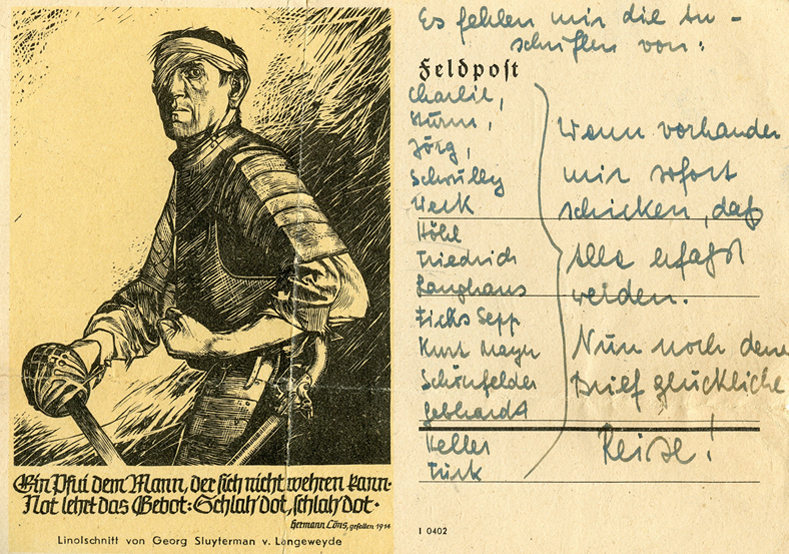 Ein Pfui dem Mann, der sich nicht wehren kann.
Not lehrt das Gebot: Schlah' dot, schlah' dot.
Hermann Löns, gefallen 1914
Linolschnitt von Georg Sluyterman v. Langeweyde
Es fehlen mir die An-
schriften von:
Feldpost
Charlie,
Jörg,
Werk
Höhl
Friedrich
Langhans
Sepp
Kurt Mayer
Schönfelder
Gebhardt
Keller
Türk
Wenn vorhanden
mir sofort
schicken, daß
Alle erfaßt
werden.
Nun noch dem
Brief glückliche
Reise!
I 0402